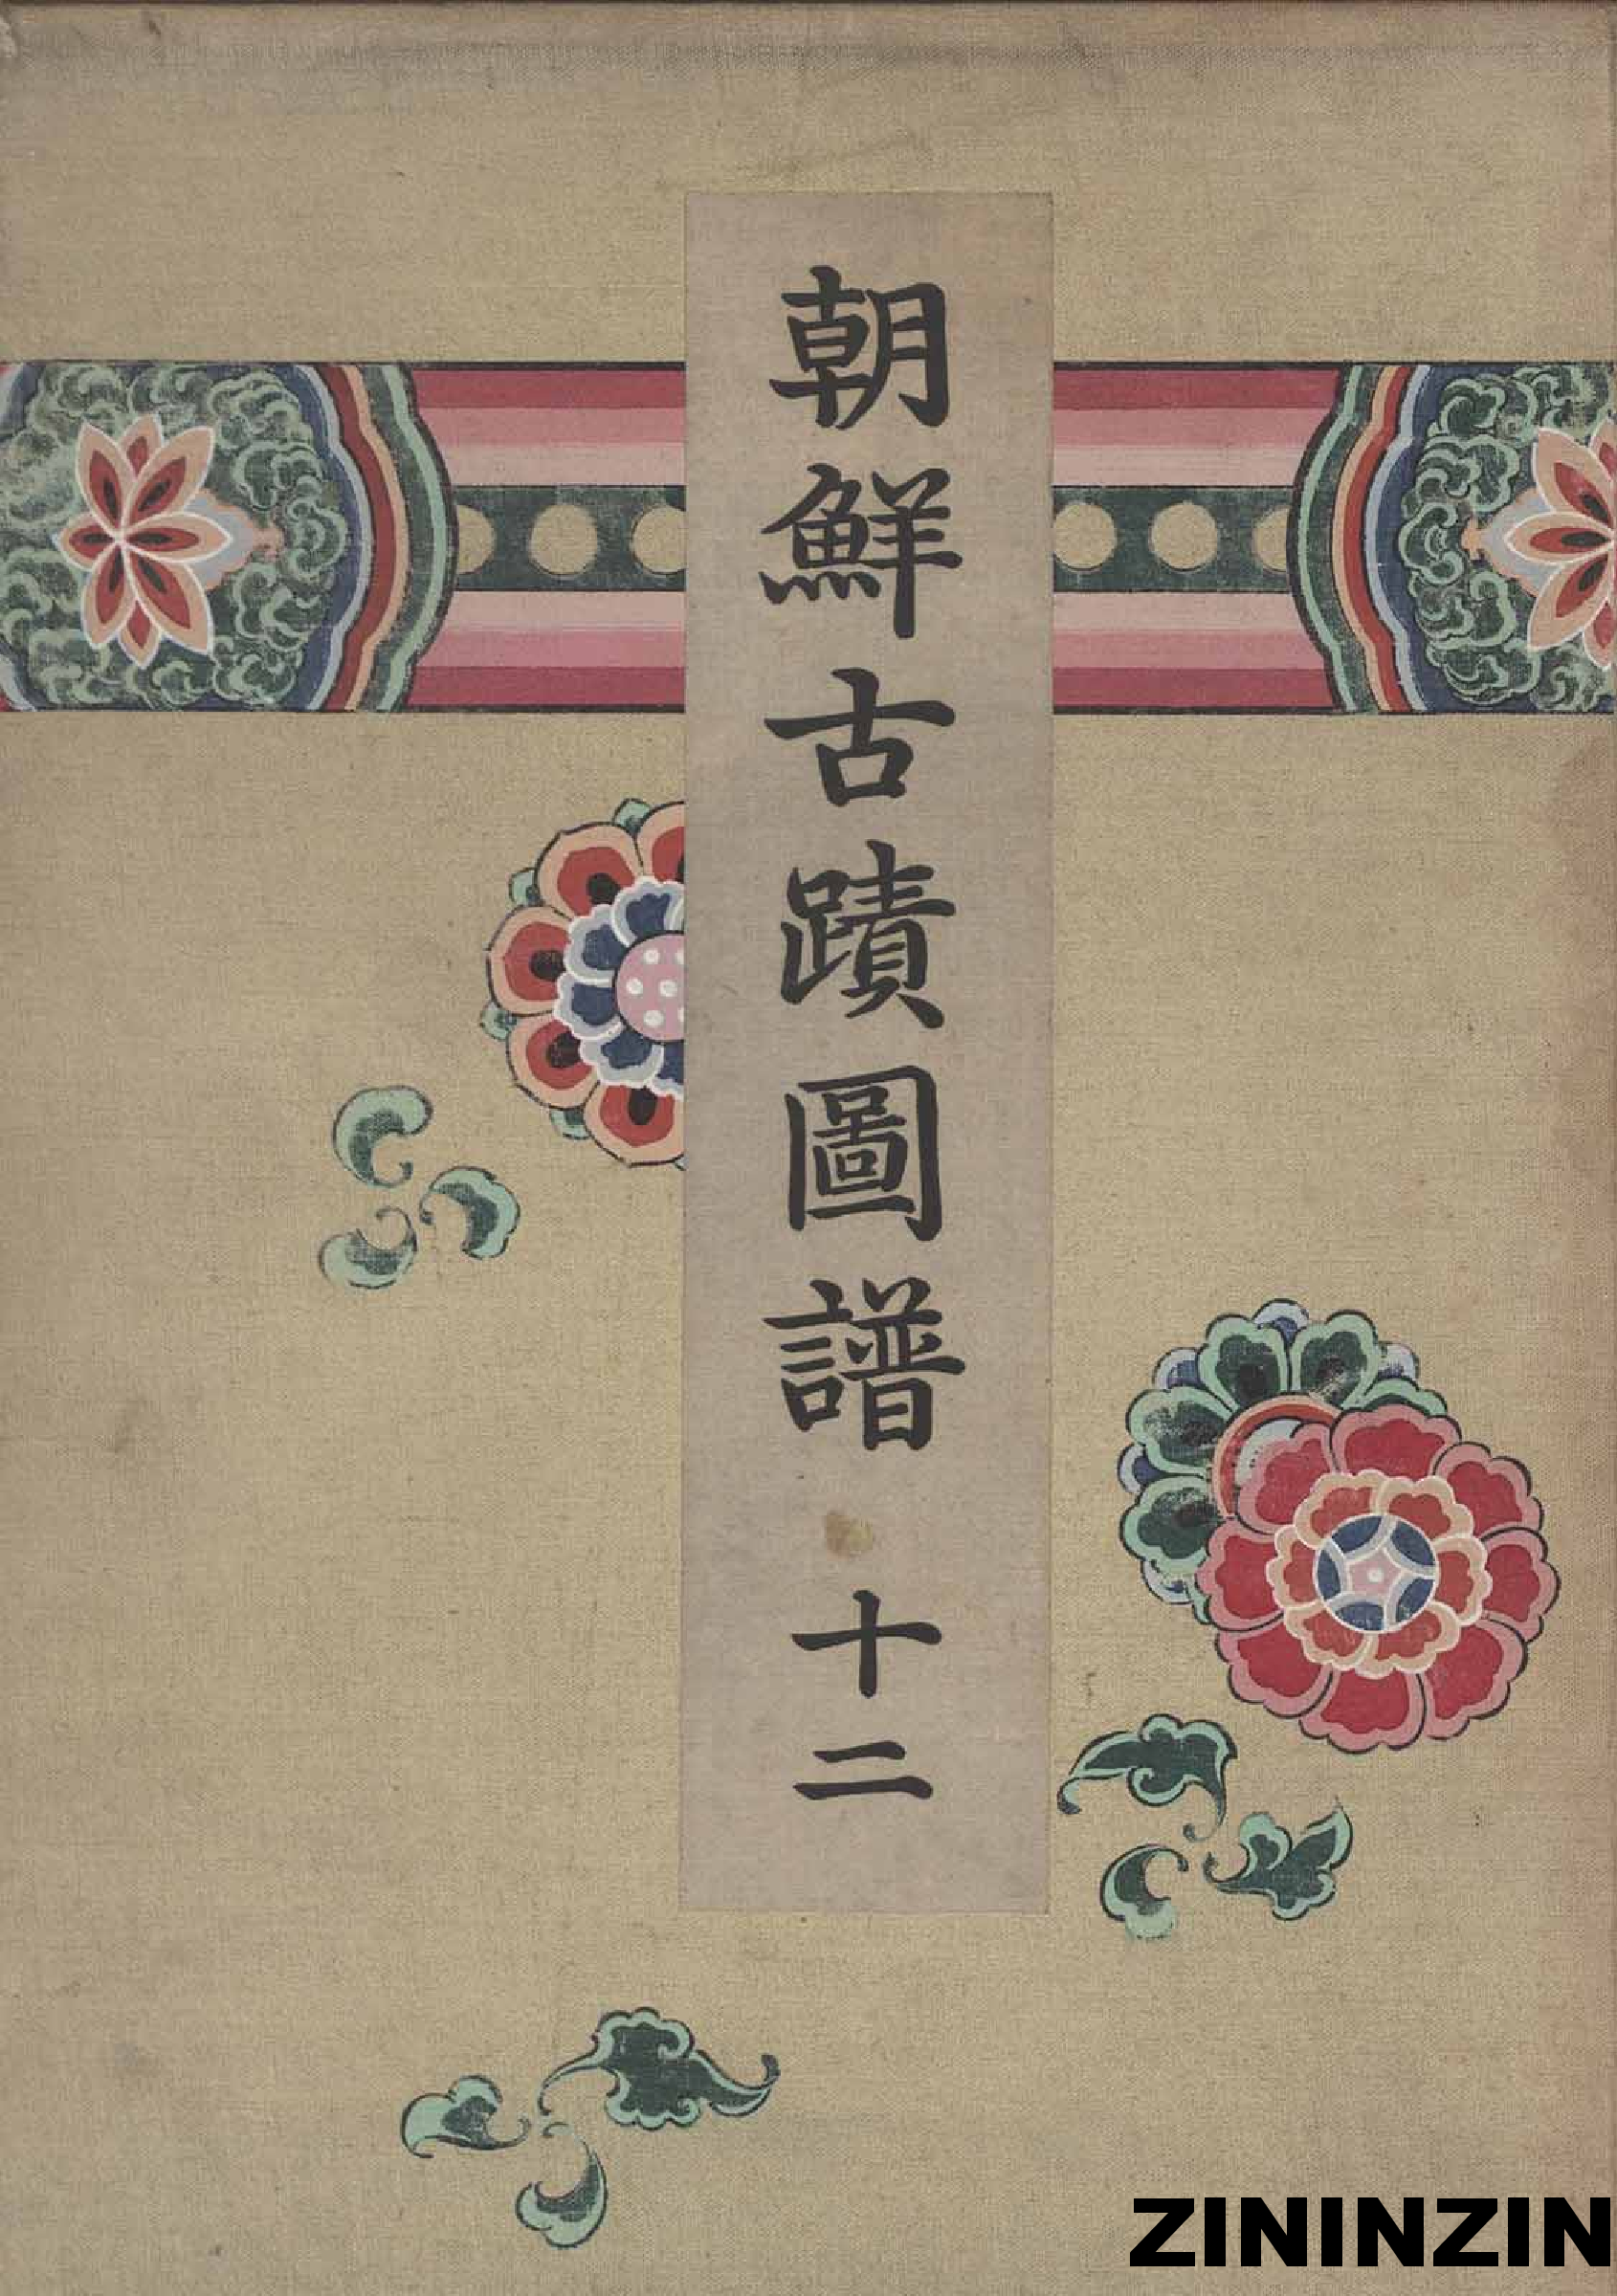 朝鮮古蹟圖譜
十二
ZININZIN